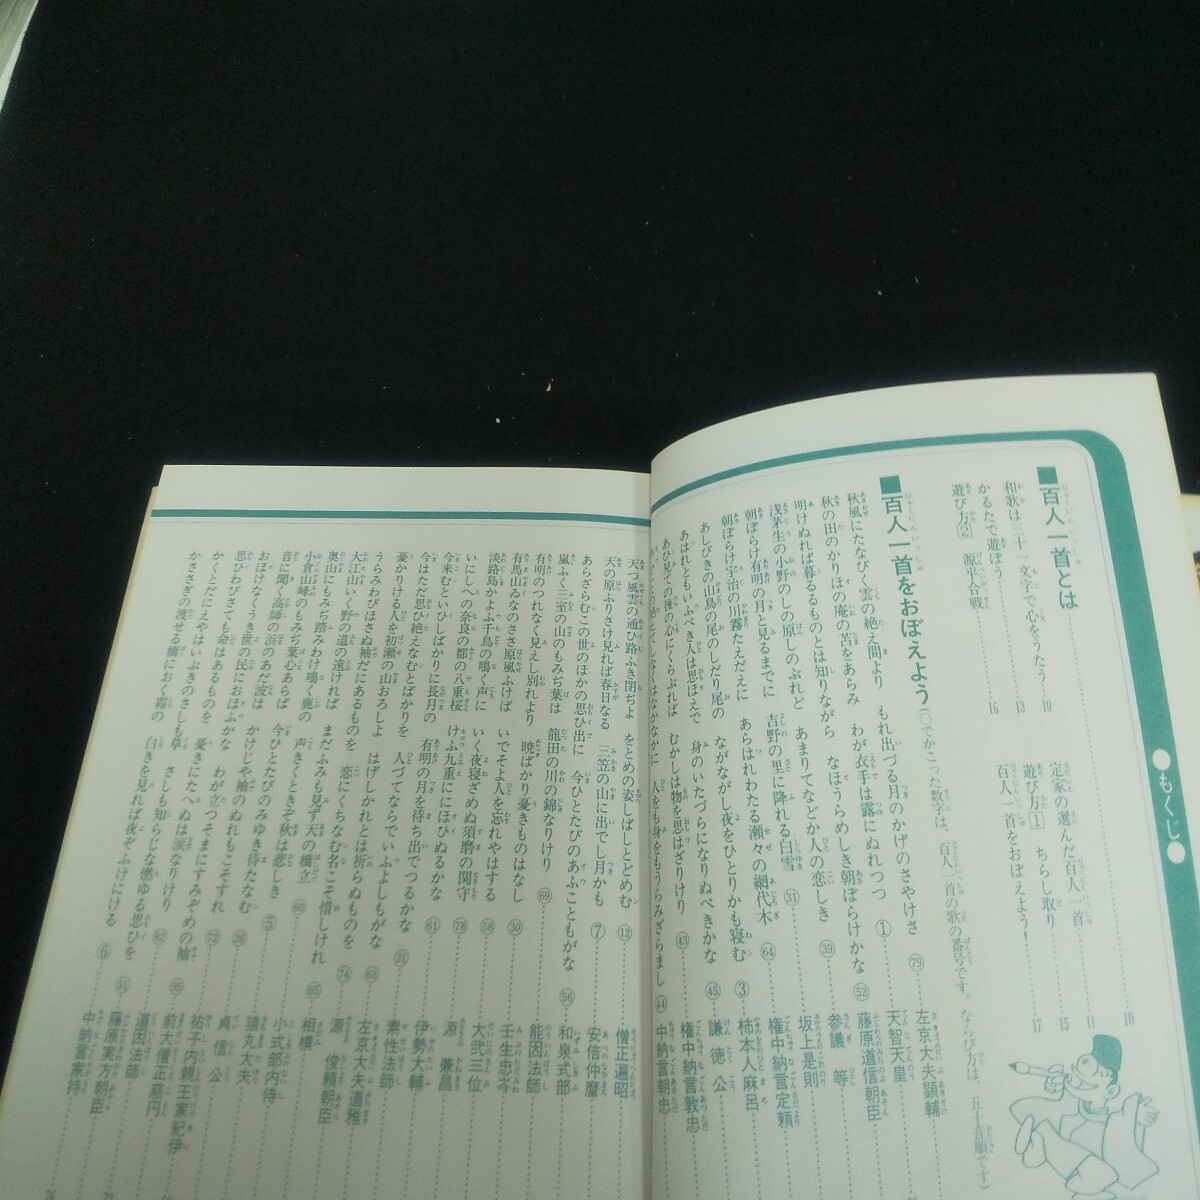 ●もくじ●
■百人一首とは
和歌は三十一文字で心をうたう 10
定家の選んだ百人一首 10
かるたで遊ぼう 13
遊び方1 ちらし取り 15
遊び方2 源平合戦 16
百人一首をおぼえよう! 17
■百人一首をおぼえよう(○でかこった数字は、百人一首の歌の番号です。ならび方は、五十音順です)
秋風にたなびく雲の絶え間より もれ出づる月のかげのさやけさ 79 左京大夫顕輔
秋の田のかりほの庵の苫をあらみ わが衣手は露にぬれつつ ① 天智天皇
明けぬれば暮るるものとは知りながら なほうらめしき朝ぼらけかな 52 藤原道信朝臣
浅茅生の小野のしの原しのぶれど あまりてなどか人の恋しき 39 参議 等
朝ぼらけ有明の月と見るまでに 吉野の里に降れる白雪 31 坂上是則
朝ぼらけ宇治の川霧たえだえに あらはれわたる瀬々の網代木 64 権中納言定頼
あしびきの山鳥の尾のしだり尾の ながながし夜をひとりかも寝む ③ 柿本人麻呂
あはれともいふべき人は思ほえで 身のいたづらになりぬべきかな 45 謙徳公
あひ見ての後の心にくらぶれば むかしは物を思はざりけり 43 権中納言敦忠
人をも身をもうらみざらまし 44 中納言朝忠
天つ風雲の通ひ路ふき閉ぢよ をとめの姿しばしとどめむ 12 僧正遍昭
天の原ふりさけ見れば春日なる 三笠の山に出でし月かも ⑦ 安倍仲麿
あらざらむこの世のほかの思ひ出に 今ひとたびのあふこともがな 56 和泉式部
嵐ふく三室の山のもみぢ葉は 龍田の川の錦なりけり 69 能因法師
有明のつれなく見えし別れより 暁ばかり憂きものはなし 30 壬生忠岑
有馬山ゐなのささ原風ふけば いでそよ人を忘れやはする 58 大弐三位
淡路島かよふ千鳥の鳴く声に いく夜寝ざめぬ須磨の関守 78 源 兼昌
いにしへの奈良の都の八重桜 けふ九重ににほひぬるかな 61 伊勢大輔
今来むといひしばかりに長月の 有明の月を待ち出でつるかな 21 素性法師
今はただ思ひ絶えなむとばかりを 人づてならでいふよしもがな 63 左京大夫道雅
憂かりける人を初瀬の山おろしよ はげしかれとは祈らぬものを 74 源 俊頼朝臣
うらみわびほさぬ袖だにあるものを 恋にくちなむ名こそ惜しけれ 65 相模
大江山いく野の道の遠ければ まだふみも見ず天の橋立 60 小式部内侍
奥山にもみぢ踏みわけ鳴く鹿の 声きくときぞ秋は悲しき ⑤ 猿丸大夫
小倉山峰のもみぢ葉心あらば 今ひとたびのみゆき待たなむ 26 貞信公
音に聞く高師の浜のあだ波は かけじや袖のぬれもこそすれ 72 祐子内親王家紀伊
おほけなくうき世の民におほふかな わが立つそまにすみぞめの袖 95 前大僧正慈円
思ひわびさても命はあるものを 憂きにたへぬは涙なりけり 82 道因法師
かくとだにえやはいぶきのさしも草 さしも知らじな燃ゆる思ひを 51 藤原実方朝臣
かささぎの渡せる橋におく霜の 白きを見れば夜ぞふけにける ⑥ 中納言家持